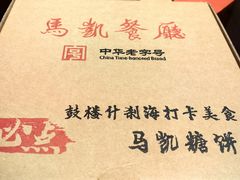 馬凱餐廳
中华老字号
China Time-honored Brand
鼓楼什刹海打卡美食
马凯糖饼
点